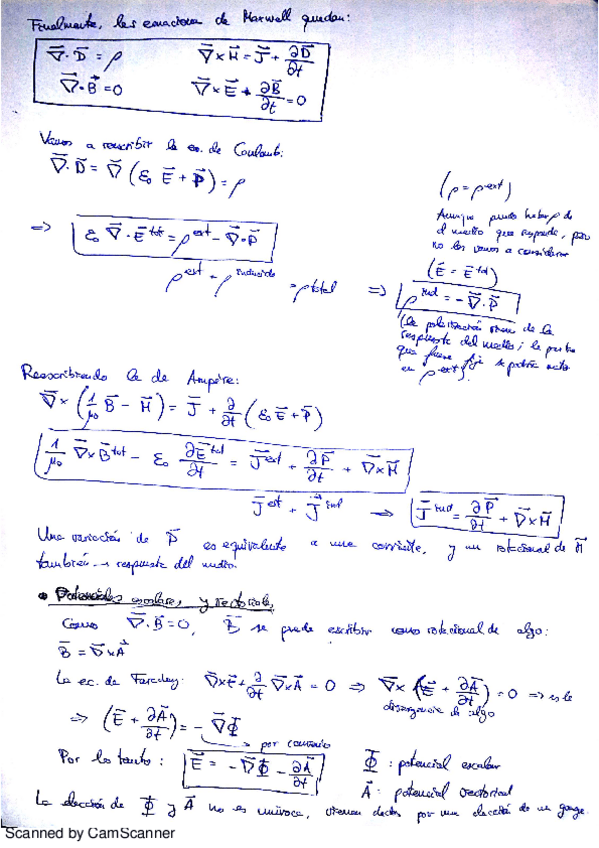 Finalmente, las ecuaciones de Maxwell quedan:
∇⃗·D⃗ = ρ      ∇⃗×H⃗ = J⃗ + ∂D⃗/∂t
∇⃗·B⃗ = 0      ∇⃗×E⃗ + ∂B⃗/∂t = 0
Vamos a reescribir la ec. de Coulomb:
∇⃗·D⃗ = ∇⃗ (ε₀ E⃗ + P⃗) = ρ
(ρ = ρ^ext)
Aunque puede haber ρ de
el medio que responde, pero
no los vamos a considerar
⇒ ε₀ ∇⃗·E⃗^tot = ρ^ext − ∇⃗·P⃗
(E⃗ = E⃗^tot)
ρ^ext + ρ^inducido = ρ^total ⇒ ρ^ind = −∇⃗·P⃗
(la polarización viene de la
respuesta del medio; la parte
que fuera fija se podría meter
en ρ^ext).
Reescribiendo la de Ampère:
∇⃗× (1/μ₀ B⃗ − M⃗) = J⃗ + ∂/∂t (ε₀ E⃗ + P⃗)
1/μ₀ ∇⃗×B⃗^tot − ε₀ ∂E⃗^tot/∂t = J⃗^ext + ∂P⃗/∂t + ∇⃗×M⃗
J⃗^ext + J⃗^ind ⇒ J⃗^ind = ∂P⃗/∂t + ∇⃗×M⃗
Una variación de P⃗ es equivalente a una corriente, y un rotacional de M⃗
también → respuesta del medio.
• Potenciales escalares y vectoriales
Como ∇⃗·B⃗ = 0, B⃗ se puede escribir como rotacional de algo:
B⃗ = ∇⃗×A⃗
La ec. de Faraday: ∇⃗×E⃗ + ∂/∂t ∇⃗×A⃗ = 0 ⇒ ∇⃗× (E⃗ + ∂A⃗/∂t) = 0 ⇒ es la
divergencia de algo
⇒ (E⃗ + ∂A⃗/∂t) = −∇⃗Φ
por convenio
Por lo tanto: E⃗ = −∇⃗Φ − ∂A⃗/∂t
Φ : potencial escalar
A⃗ : potencial vectorial
La elección de Φ y A⃗ no es unívoca, vienen dados por una elección de un gauge.
Scanned by CamScanner